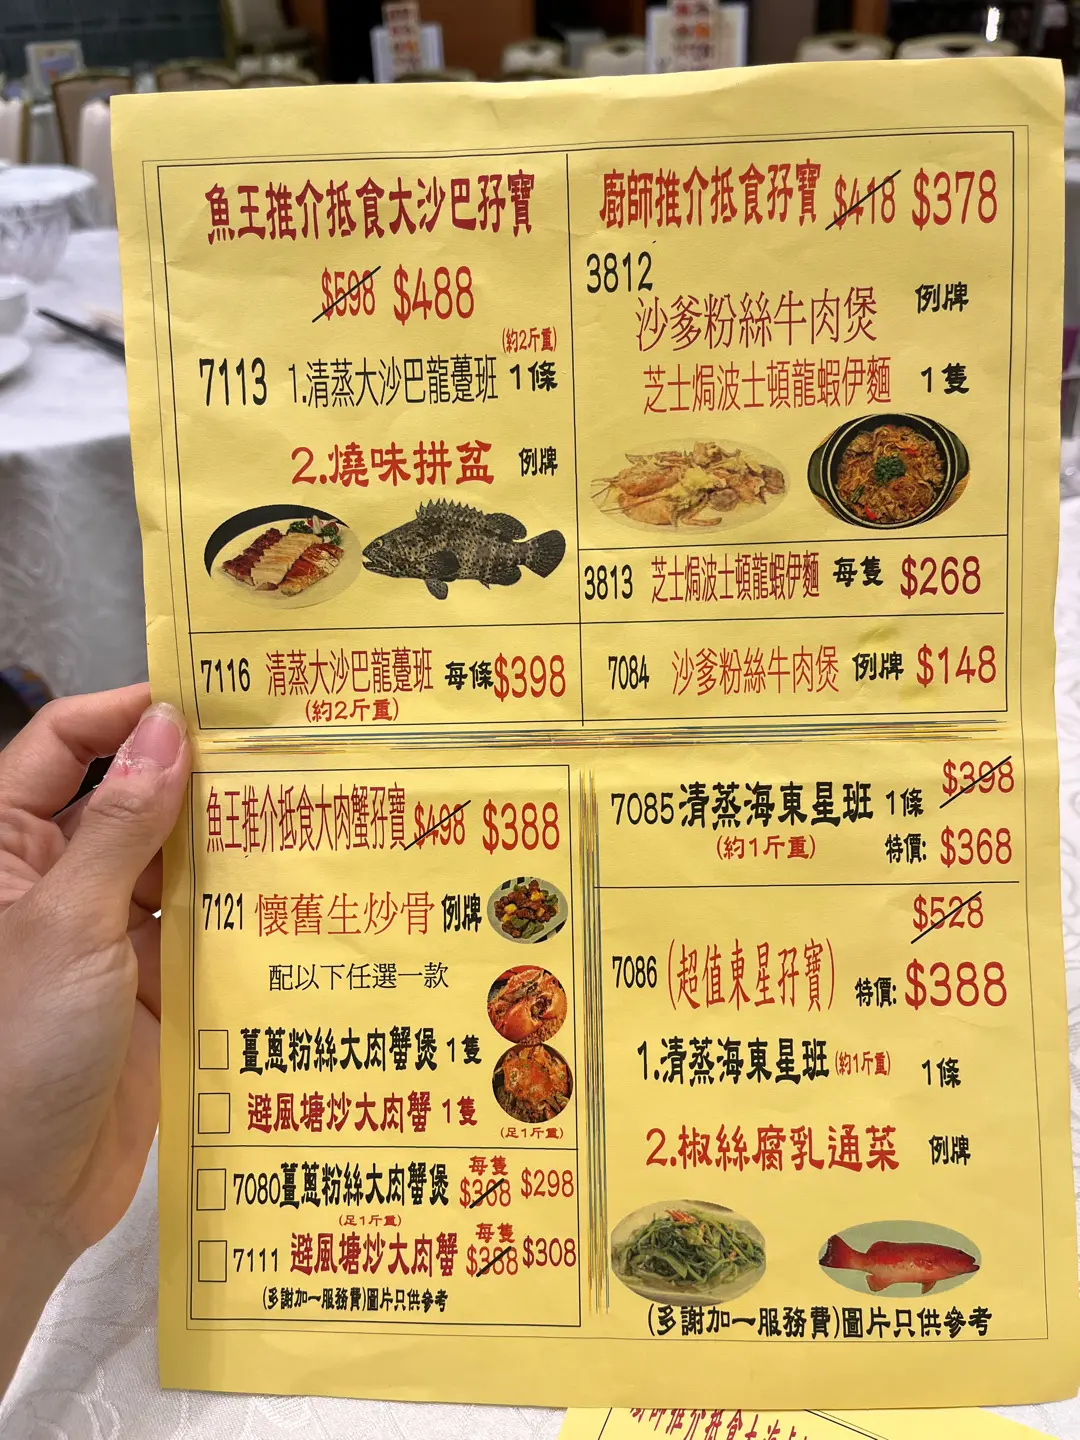 魚王推介抵食大沙巴孖寶
$598 $488
(約2斤重)
7113 1.清蒸大沙巴龍躉班 1條
2.燒味拼盆 例牌
7116 清蒸大沙巴龍躉班 每條$398
(約2斤重)
廚師推介抵食孖寶 $418 $378
3812
沙爹粉絲牛肉煲 例牌
芝士焗波士頓龍蝦伊麵 1隻
3813 芝士焗波士頓龍蝦伊麵 每隻 $268
7084 沙爹粉絲牛肉煲 例牌 $148
魚王推介抵食大肉蟹孖寶 $498 $388
7121 懷舊生炒骨 例牌
配以下任選一款
薑蔥粉絲大肉蟹煲 1隻
避風塘炒大肉蟹 1隻
(足1斤重)
7080薑蔥粉絲大肉蟹煲 每隻 $368 $298
(足1斤重)
7111 避風塘炒大肉蟹 每隻 $388 $308
(多謝加一服務費)圖片只供參考
$398
7085清蒸海東星班 1條
(約1斤重) 特價: $368
$528
7086 (超值東星孖寶) 特價: $388
1.清蒸海東星班(約1斤重) 1條
2.椒絲腐乳通菜 例牌
(多謝加一服務費)圖片只供參考